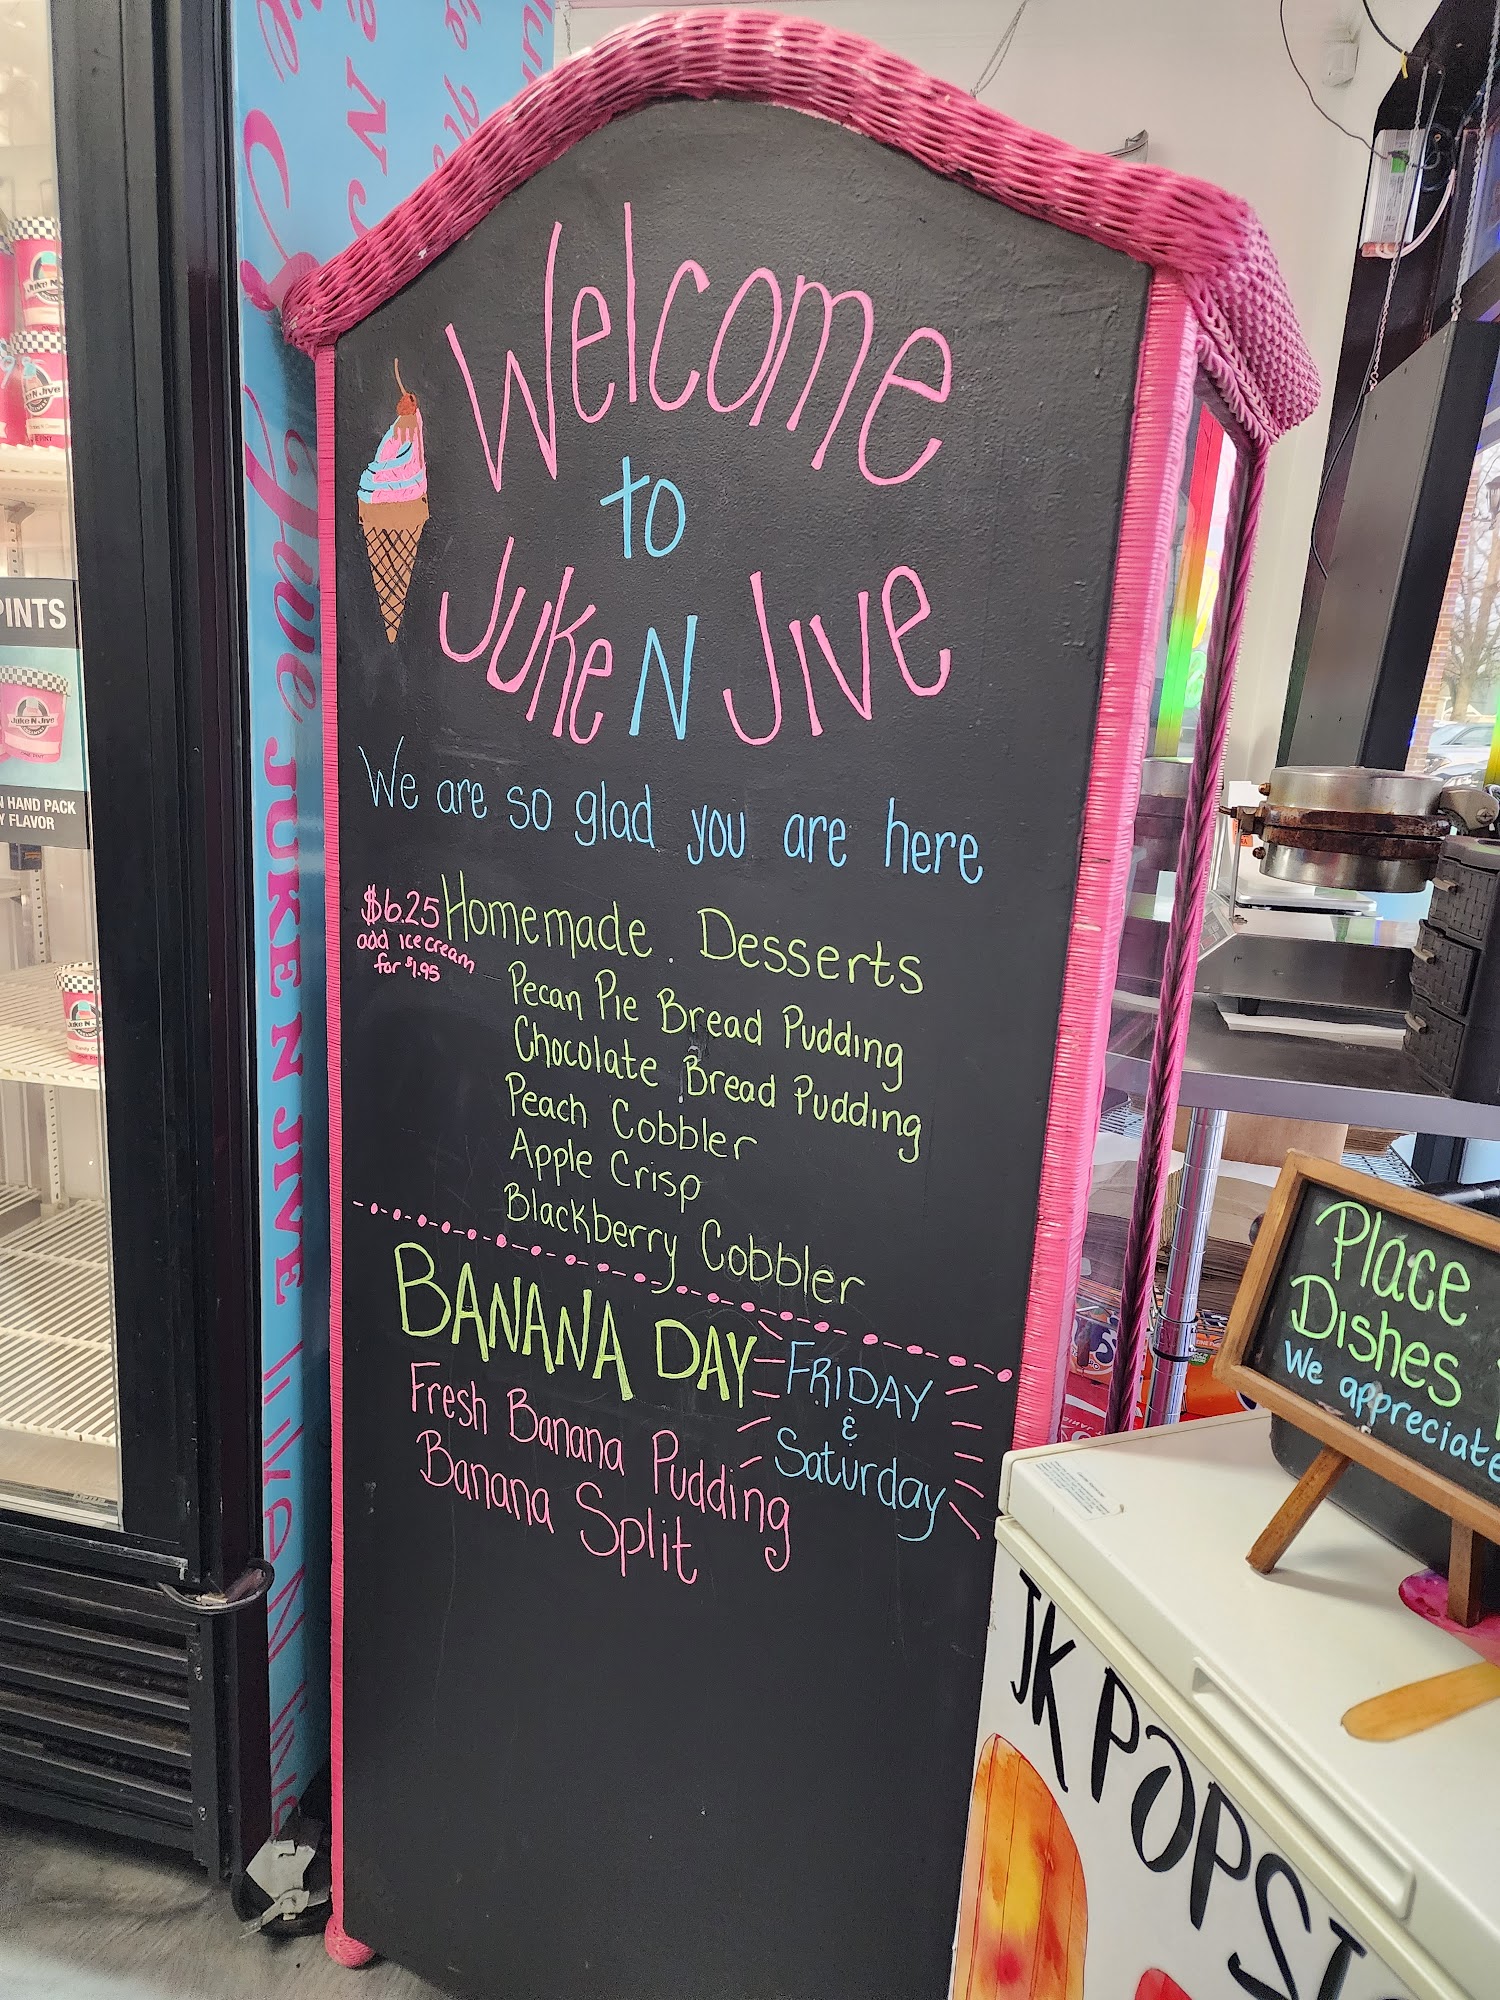 Welcome
to
Juke N Jive
We are so glad you are here
$6.25
add ice cream
for $1.95
Homemade Desserts
Pecan Pie Bread Pudding
Chocolate Bread Pudding
Peach Cobbler
Apple Crisp
Blackberry Cobbler
BANANA DAY
FRIDAY
&
Saturday
Fresh Banana Pudding
Banana Split
JUKE N JIVE
Juke N Jive
HAND PACK
FLAVOR
Place
Dishes
We appreciate
JK POPS